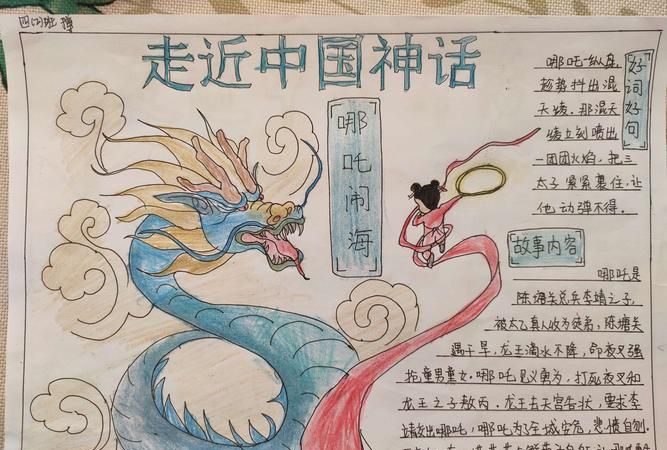 四(2)班
走近中国神话
哪吒闹海
好词好句
哪吒一纵身,
趁势抖出混
天绫.那混天
绫立刻喷出
一团团火焰,把三
太子紧紧裹住,让
他动弹不得.
故事内容
哪吒是
陈塘关总兵李靖之子,
被太乙真人收为徒弟,陈塘关
遇干旱,龙王滴水不降,命夜叉强
抢童男童女.哪吒见义勇为,打死夜叉和
龙王之子敖丙.龙王去天宫告状,要求李
靖交出哪吒,哪吒为了全城安危,悲愤自刎.